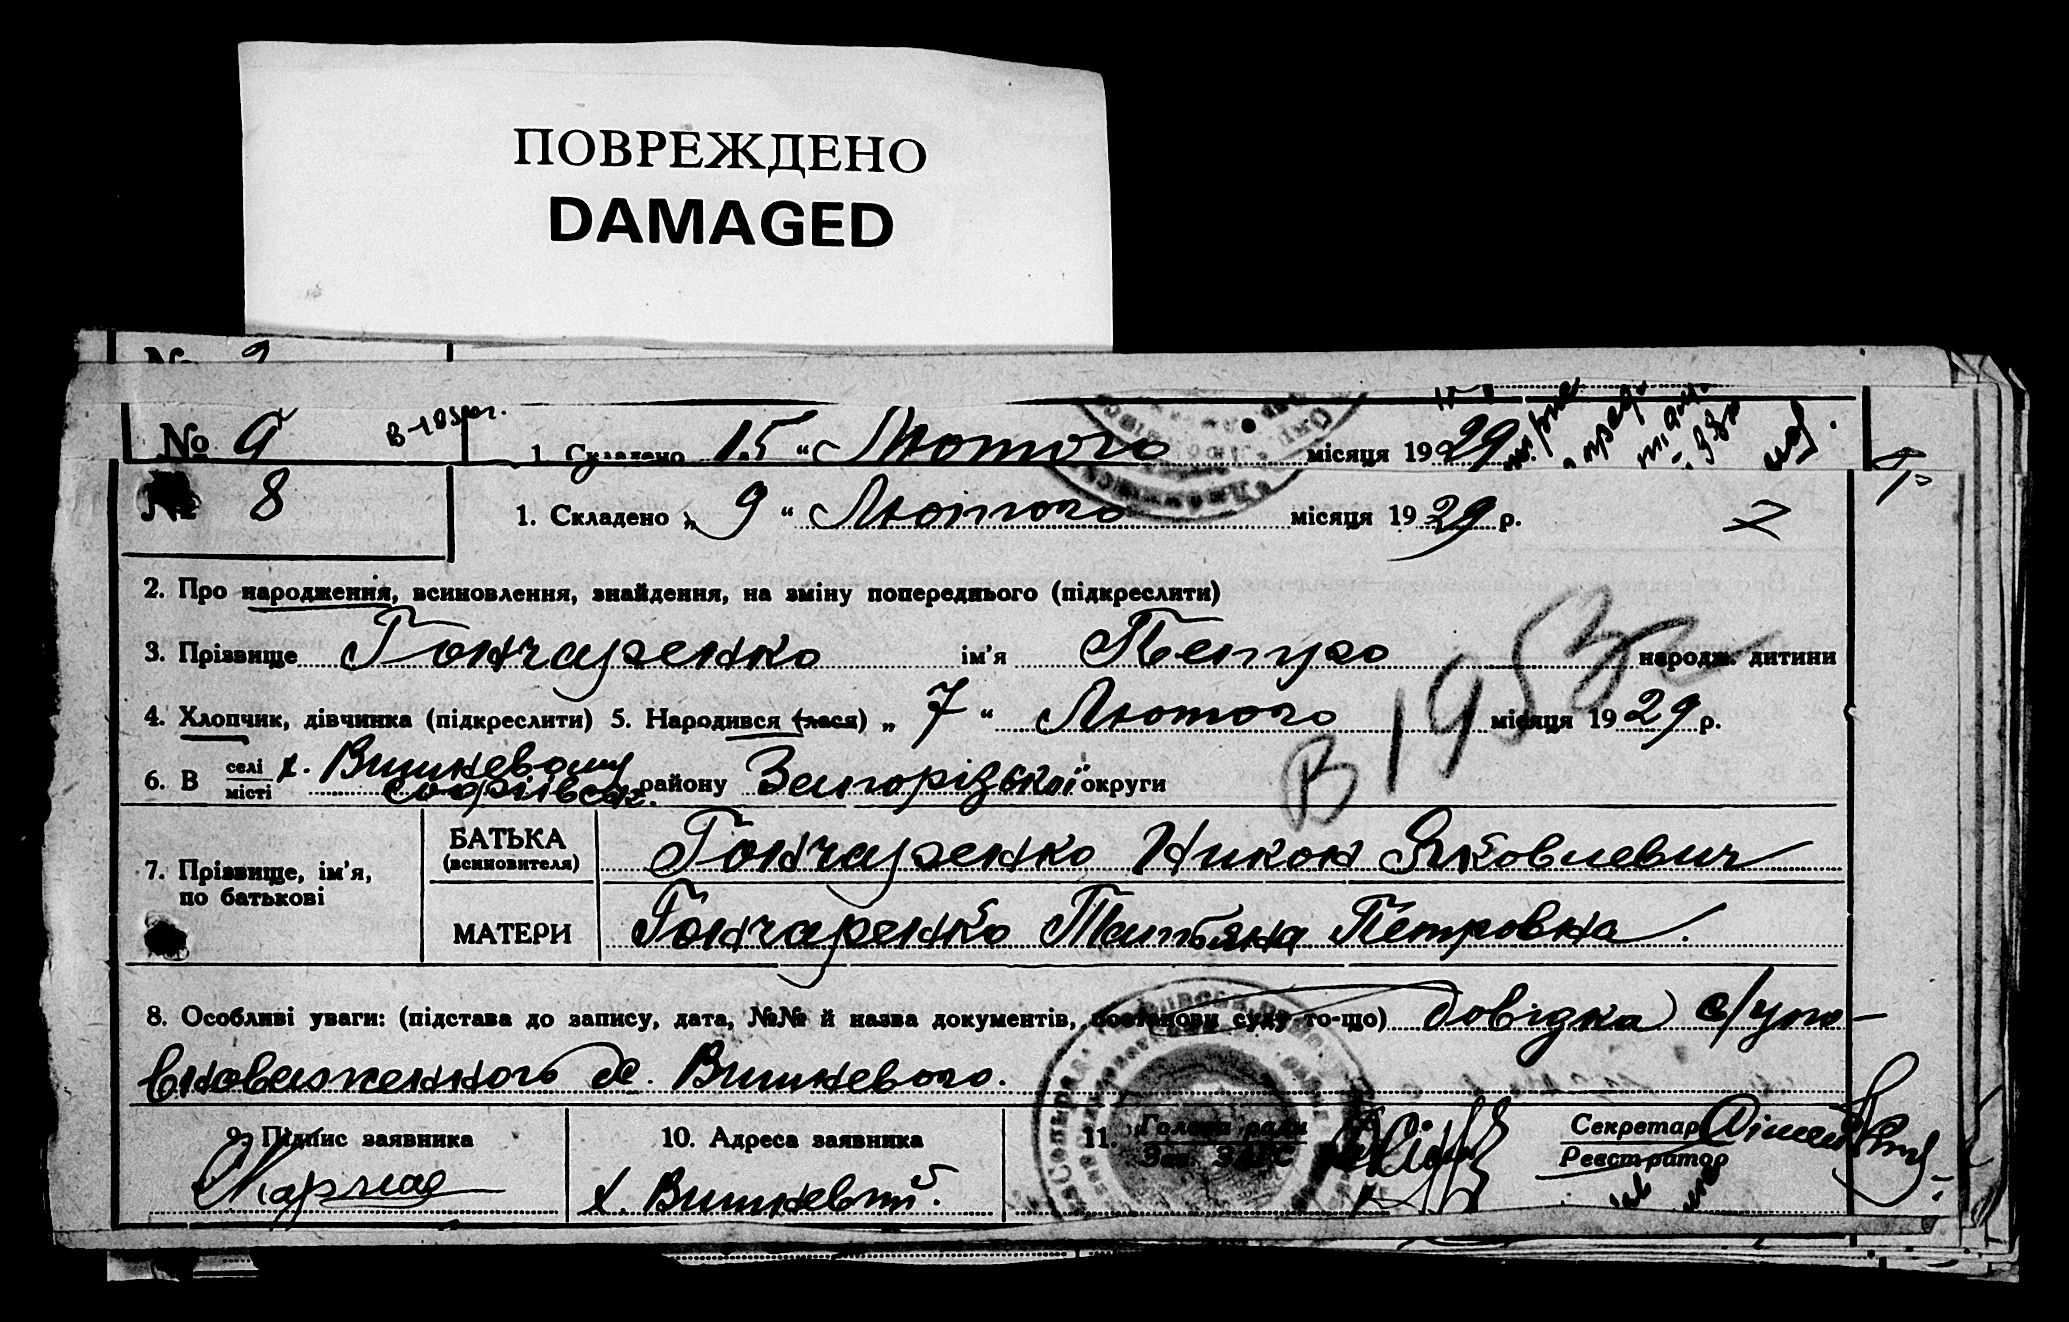 ПОВРЕЖДЕНО
DAMAGED
№ 9
1. Складено 15 " Лютого місяця 1929
№ 8
1. Складено „ 9 " Лютого місяця 1929 р. 2
2. Про народження, всиновлення, знайдення, на зміну попереднього (підкреслити)
3. Прізвище Гончаренко ім'я Петро народж. дитини
4. Хлопчик, дівчинка (підкреслити) 5. Народився (лася) „ 7 " Лютого місяця 1929 р.
В 1953
6. В селі місті х. Вишневому Софіївськ. району Запорізької округи
7. Прізвище, ім'я, по батькові
БАТЬКА (всиновителя) Гончаренко Никон Яковлевич
МАТЕРИ Гончаренко Татьяна Петровна.
8. Особливі уваги: (підстава до запису, дата, №№ й назва документів, постанови суду то-що) довідка с/упо-
вноваженного х. Вишневого.
9. Підпис заявника
10. Адреса заявника
х. Вишневий.
11. Голова ради
Зав. ЗАГС
Секретар
Реєстратор